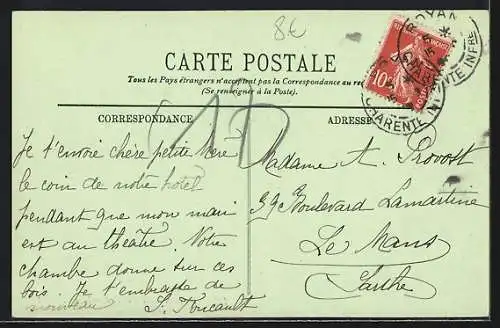 8€
CARTE POSTALE
Tous les Pays étrangers n'acceptent pas la Correspondance au
(Se renseigner à la Poste).
CORRESPONDANCE
ADRESSE
ROYAN
CHARENTE INFRE
10
Je t'envoie chère petite Mère
le coin de notre hotel
pendant que mon mari
est au théatre. Notre
chambre donne sur ces
bois. Je t'embrasse de
nouveau S. Foucault
Madame A. Provost
59 Boulevard Lamartine
Le Mans
Sarthe